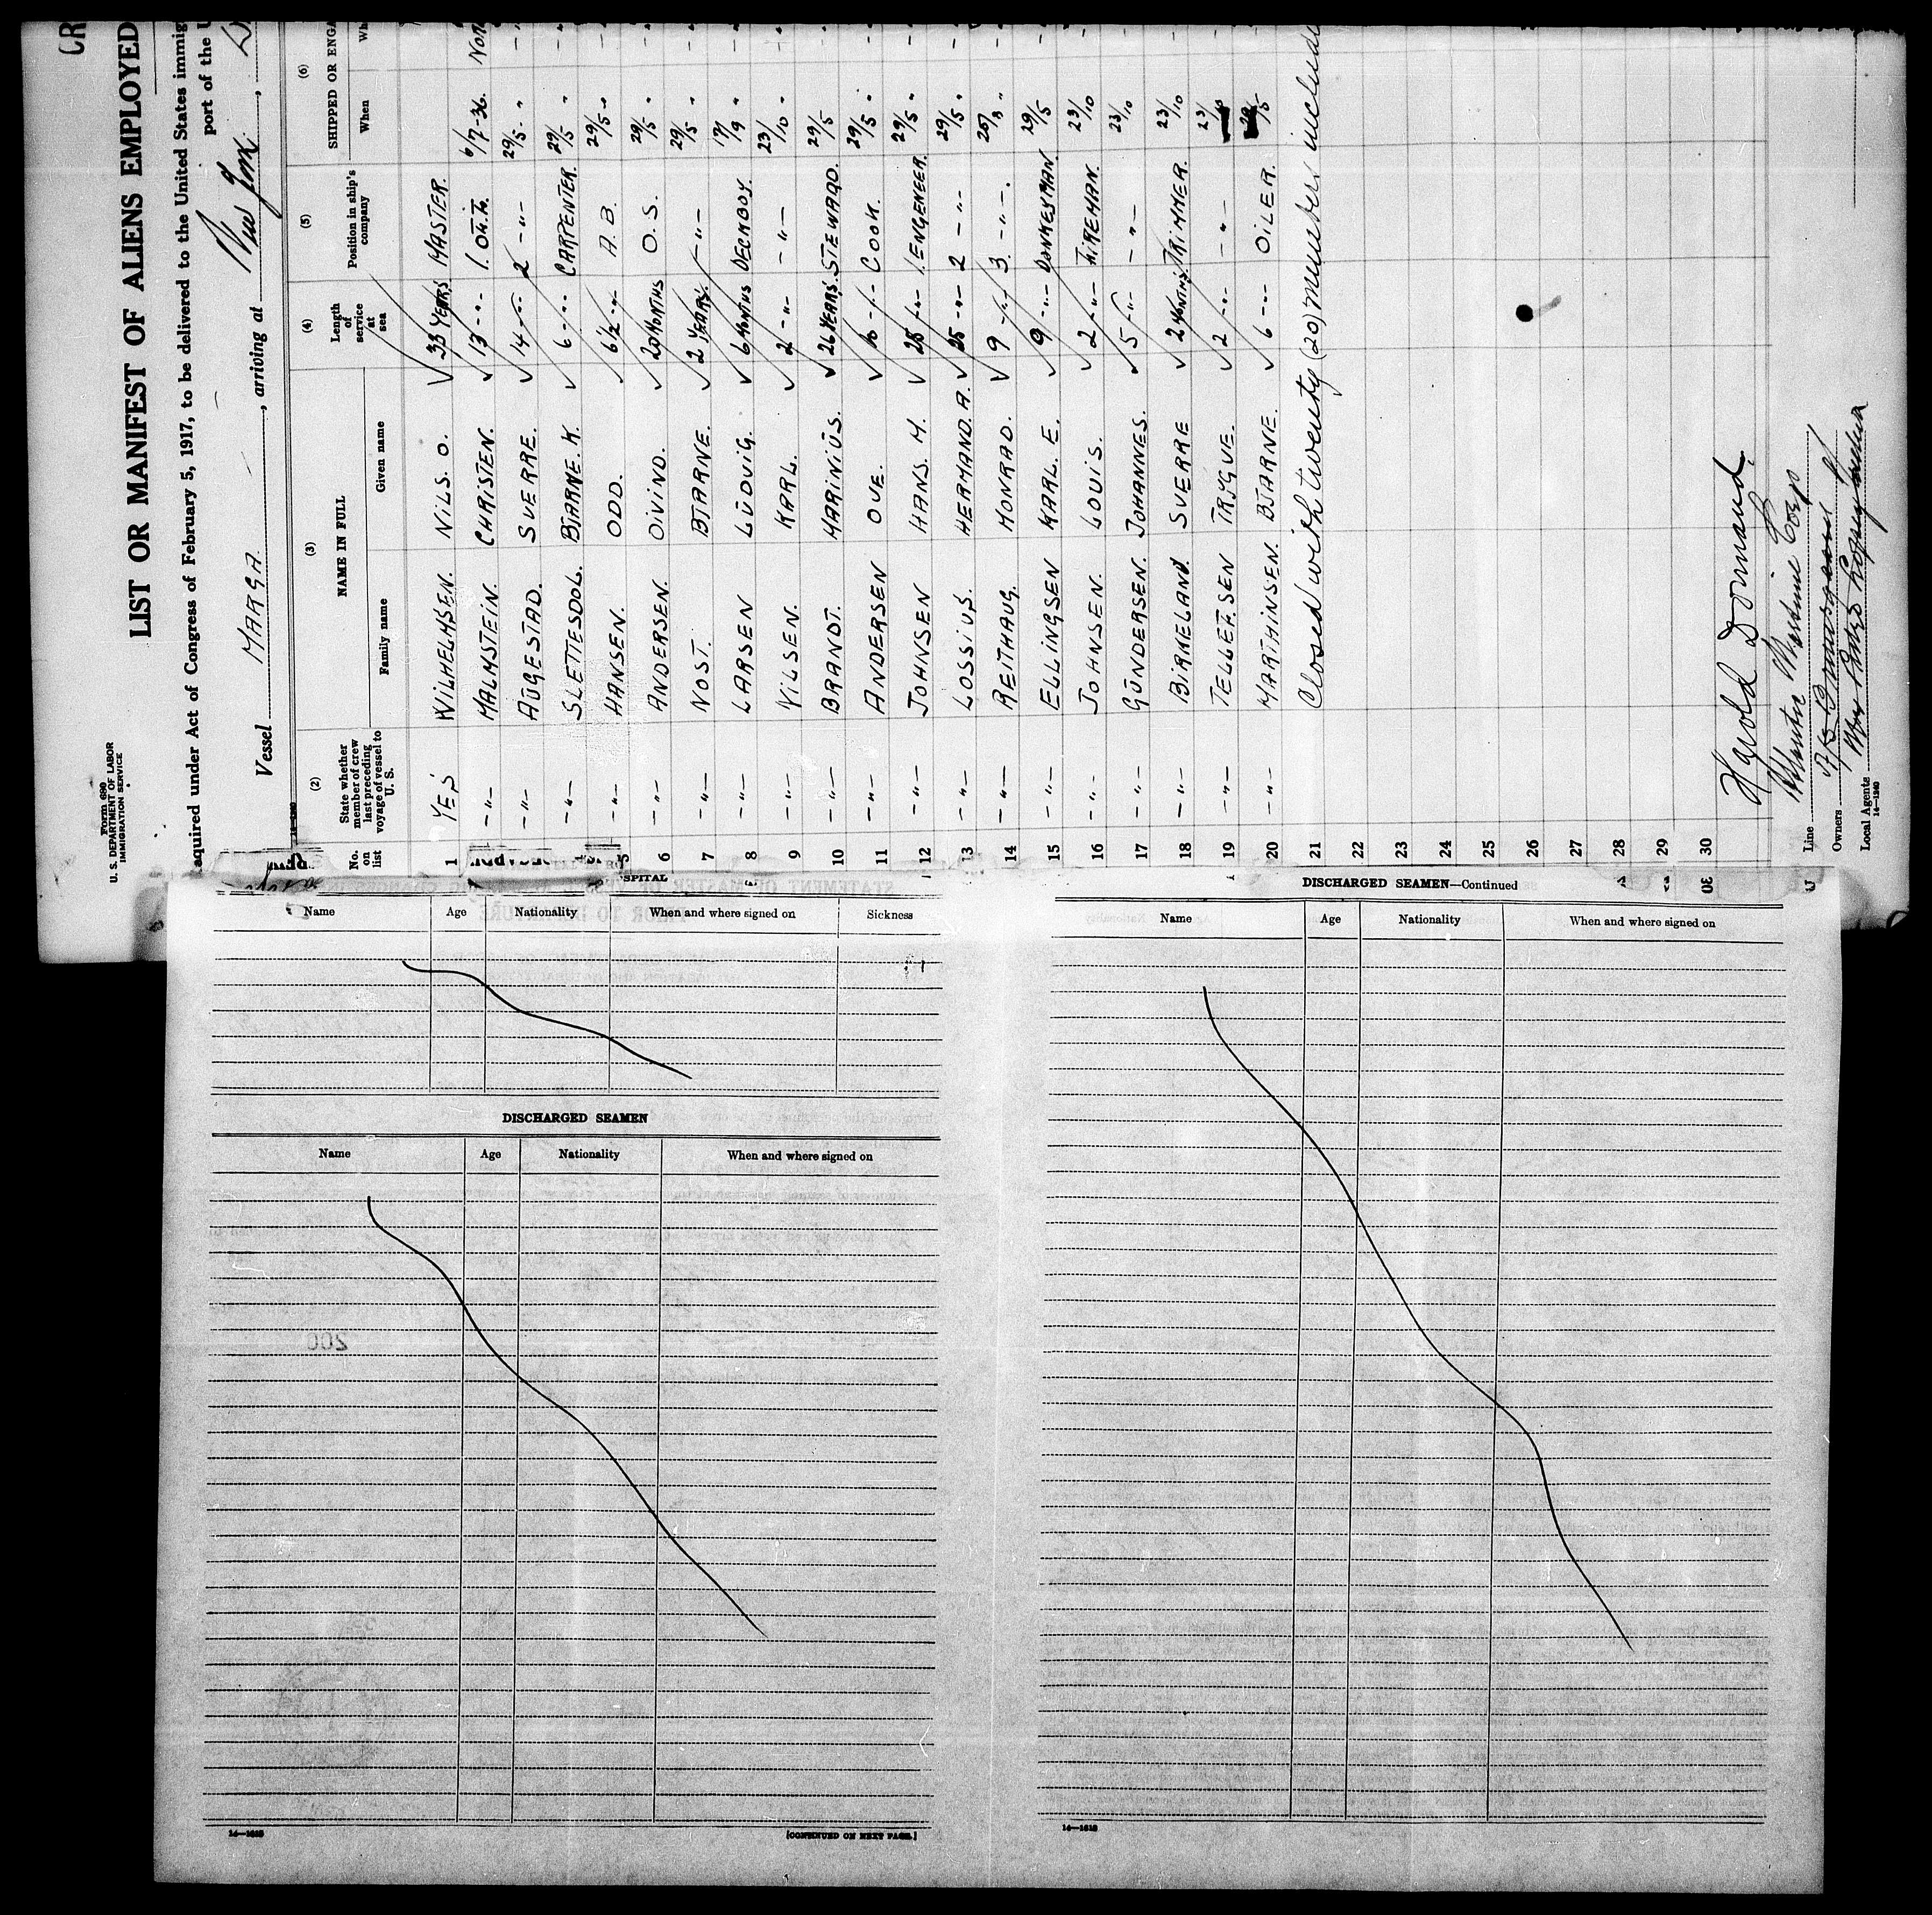 CR
LIST OR MANIFEST OF ALIENS EMPLOYED
Form 680
U. S. DEPARTMENT OF LABOR
IMMIGRATION SERVICE
equired under Act of Congress of February 5, 1917, to be delivered to the United States immig
port of the U
Vessel MARGA, arriving at New York,
(2) (3) (4) (5) (6)
No. on list State whether member of crew last preceding voyage of vessel to U. S. NAME IN FULL Length of service at sea Position in ship's company SHIPPED OR ENGA
Family name Given name When Wh
1 YES WILHELMSEN. NILS. O. 33 YEARS MASTER.
MALMSTEIN. CHRISTEN. 13 -"- 1. OFF. 6/7-36. Nor
-"- AUGESTAD. SVERRE. 14 -"- 2 -"- 29/5 - "
-"- SLETTESDOL. BJARNE. K. 6 -"- CARPENTER. 29/5 "
5 -"- HANSEN. ODD. 6½ -"- A. B. 29/5 -"
6 -"- ANDERSEN. OIVIND. 20 MONTHS O. S. 29/5 "
7 -"- NOST. BJARNE. 2 YEARS. -"- 29/5 "
8 -"- LARSEN LUDVIG. 6 MONTHS DECKBOY. 17/9 "
9 -"- NILSEN. KARL. 2 -"- -"- 23/10 "
10 -"- BRANDT. MARINIUS. 26 YEARS. STEWARD. 29/5
11 -"- ANDERSEN OVE. -"- COOK. 29/5 "
12 -"- JOHNSEN HANS. M. 25 -"- 1. ENGENEER. 29/5 "
13 -"- LOSSIUS. HERMAND. A. 25 -"- 2 -"- 29/5 "
14 -"- REITHAUG. MONRAD. 9 -"- 3. -"-. "
15 -"- ELLINGSEN KARL. E. 9 -"- DONKEYMAN 29/5
16 -"- JOHNSEN. LOUIS. 2 -"- FIREMAN. 23/10
17 -"- GUNDERSEN. JOHANNES. 5 -"- -"- 23/10
18 -"- BIRKELAND. SVERRE 2 MONTHS. TRIMMER. 23/10
19 -"- TELLEFSEN TRYGVE. 2 -"- -"- 23/
20 -"- MARTHINSEN. BJARNE. 6 -"- OILER. 29/5
21 Closed with twenty (20) members include
22
23
24
25
26
27
28
29
30
Harold Dormand.
Line Maritime Corp
Owners A/S
Local Agents
14—1240
SPITAL
Name Age Nationality When and where signed on Sickness
DISCHARGED SEAMEN
Name Age Nationality When and where signed on
200
14—1618 [CONTINUED ON NEXT PAGE.]
DISCHARGED SEAMEN—Continued
Name Age Nationality When and where signed on
14—1618